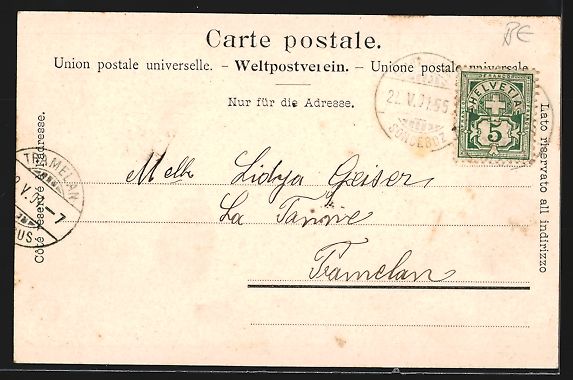 BE
Carte postale.
Union postale universelle. – Weltpostverein. – Unione postale universale
Nur für die Adresse.
HELVETIA
FRANCO
5
SONCEBOZ
TRAMELAN
Côté réservé à l'adresse.
Lato riservato all indirizzo
Melle Lidya Geiser
La Tanne
Tramelan